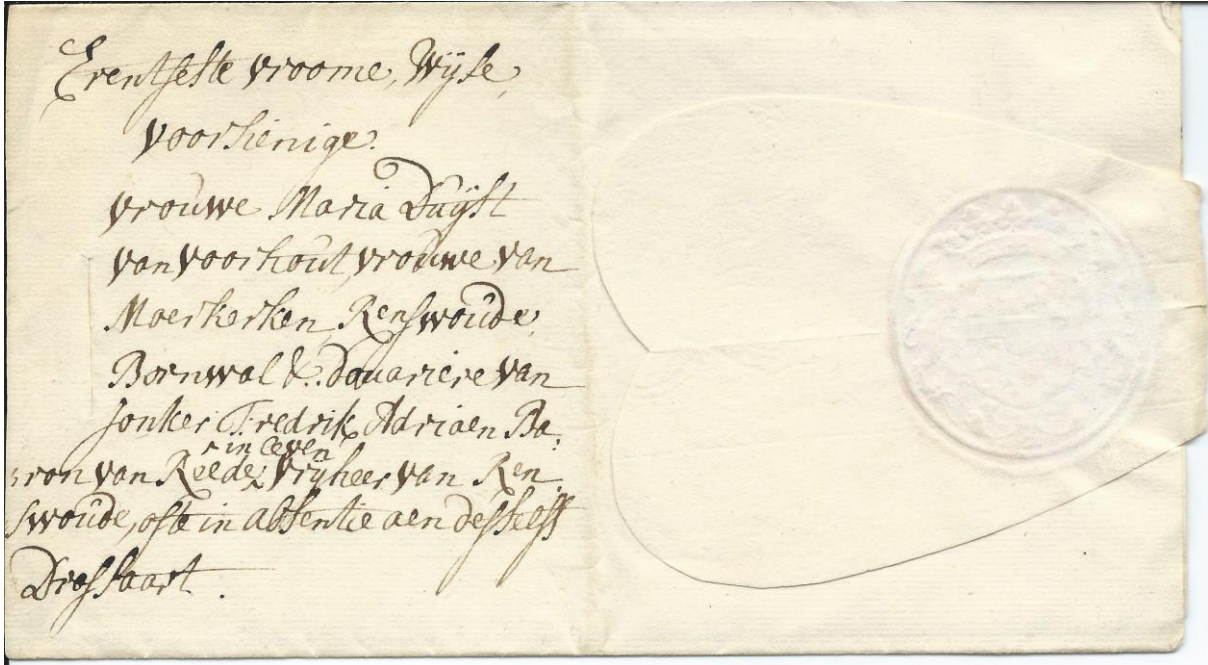 Erentfeste vroome, Wijse,
voorsienige.
vrouwe Maria Duijst
van voorhout, vrouwe van
Moerkerken, Renswoude,
Bornwal &. Douariere van
Jonker Fredrik Adriaen Ba:
in leven
:ron van Reede, vrijheer van Ren
swoude, ofte in absentie aen desselfs
Drossaart.